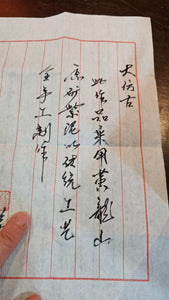 大仿古
此作品采用黄龙山
原矿紫泥以传统工艺
全手工制作